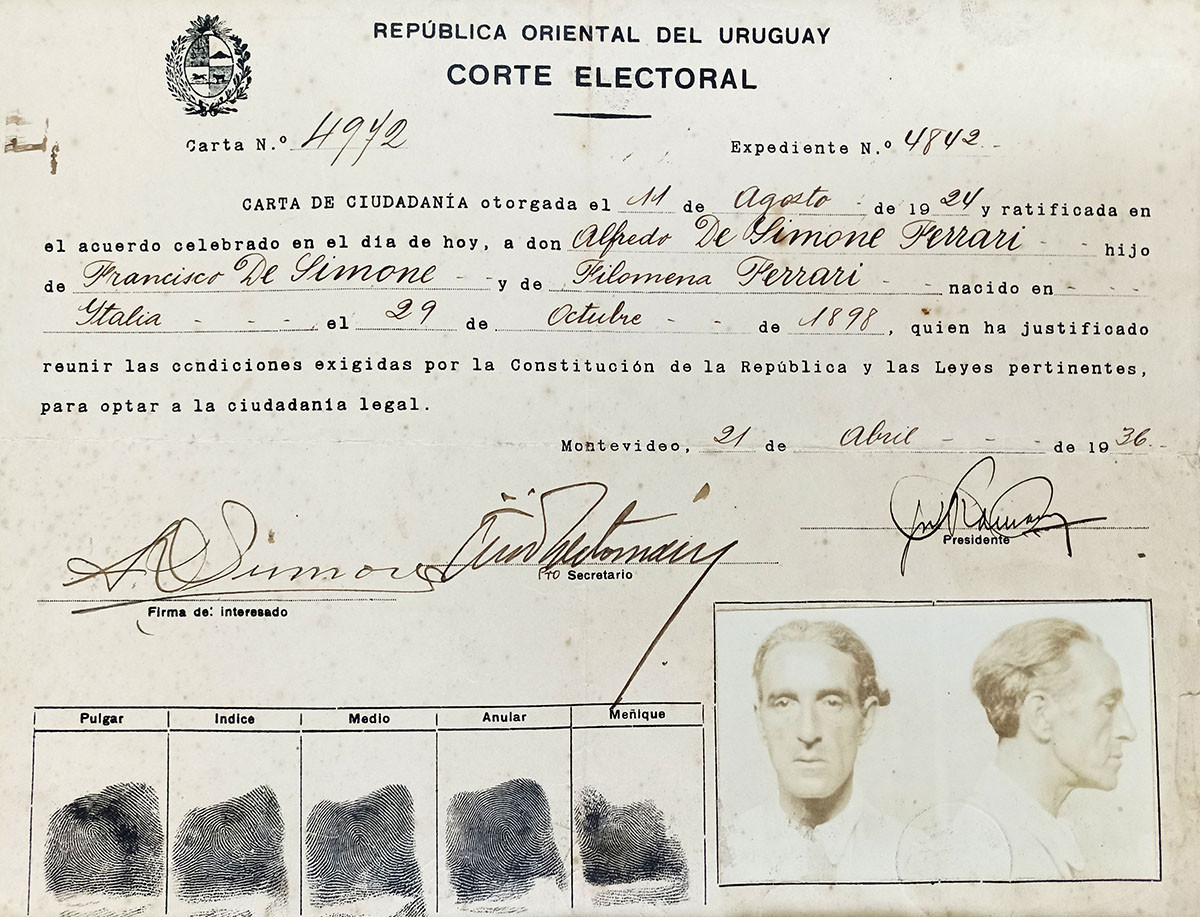 REPÚBLICA ORIENTAL DEL URUGUAY
CORTE ELECTORAL
Carta N.º 4972
Expediente N.º 4842
CARTA DE CIUDADANÍA otorgada el 11 de Agosto de 1924 y ratificada en
el acuerdo celebrado en el día de hoy, a don Alfredo De Simone Ferrari hijo
de Francisco De Simone y de Filomena Ferrari nacido en
Italia, el 29 de Octubre de 1898, quien ha justificado
reunir las condiciones exigidas por la Constitución de la República y las Leyes pertinentes,
para optar a la ciudadanía legal.
Montevideo, 21 de Abril de 1936.
Presidente
A. De Simone
Pro Secretario
Firma del interesado
Pulgar Indice Medio Anular Meñique